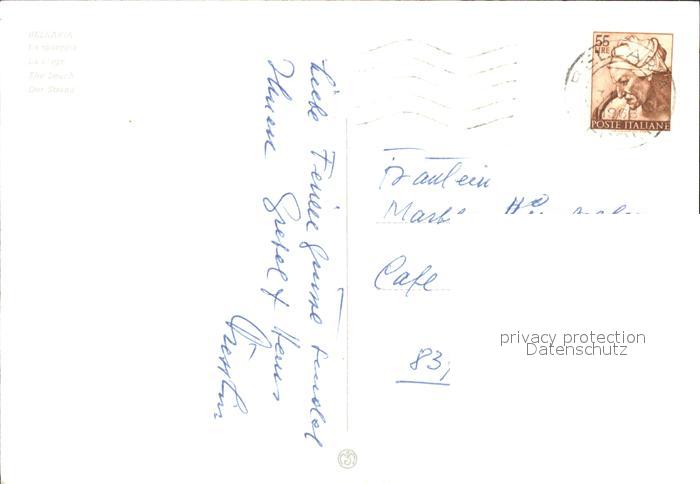 BELLARIA
La spiaggia
La plage
The beach
Der Strand
Liebe Feriengrüsse sendet
Ihnen Gretel + Hans
55
LIRE
POSTE ITALIANE
Fräulein
Cafe
83
privacy protection
Datenschutz